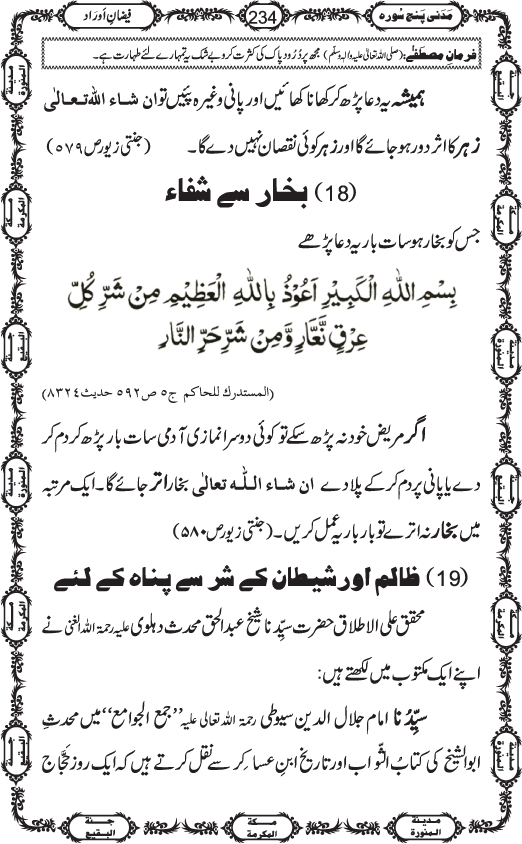 مَدَنی پنج سُورہ
234
فیضانِ اَوراد
فرمانِ مصطفٰے: (صلی اللہ تعالیٰ علیہ والہٖ وسلّم) مجھ پر دُرُود پاک کی کثرت کرو بے شک یہ تمہارے لئے طہارت ہے۔
ہمیشہ یہ دعا پڑھ کر کھانا کھائیں اور پانی وغیرہ پئیں تو ان شاء اللہ تعالٰی
زہر کا اثر دور ہو جائے گا اور زہر کوئی نقصان نہیں دے گا۔ (جنتی زیور ص ۵۷۹)
(18) بخار سے شفاء
جس کو بخار ہو سات بار یہ دعا پڑھے
بِسْمِ اللهِ الْكَبِيْرِ اَعُوْذُ بِاللهِ الْعَظِيْمِ مِنْ شَرِّ كُلِّ
عِرْقٍ نَّعَّارٍ وَّمِنْ شَرِّ حَرِّ النَّارِ
(المستدرك للحاكم ج۵ ص۵۹۲ حدیث۸۳۲۴)
اگر مریض خود نہ پڑھ سکے تو کوئی دوسرا نمازی آدمی سات بار پڑھ کر دم کر
دے یا پانی پر دم کر کے پلا دے ان شاء اللہ تعالٰی بخار اتر جائے گا۔ ایک مرتبہ
میں بخار نہ اترے تو بار بار یہ عمل کریں۔ (جنتی زیور ص ۵۸۰)
(19) ظالم اور شیطان کے شر سے پناہ کے لئے
محقق علی الاطلاق حضرت سیِّدنا شیخ عبدالحق محدث دہلوی علیہ رحمۃ اللہ الغنی نے
اپنے ایک مکتوب میں لکھتے ہیں:
سیِّدُنا امام جلال الدین سیوطی رحمۃ اللہ تعالیٰ علیہ ”جمع الجوامع“ میں محدثِ
ابوالشیخ کی کتابُ الثَّواب اور تاریخ ابنِ عساکِر سے نقل کرتے ہیں کہ ایک روز حَجَّاج
مدینة المنورة
جنة البقیع
مكة المكرمة
مكة المكرمة
جنة البقیع
مدینة المنورة
مدینة المنورة
جنة البقیع
مكة المكرمة
مكة المكرمة
جنة البقیع
مدینة المنورة
جنة البقیع
مكة المكرمة
مدینة المنورة